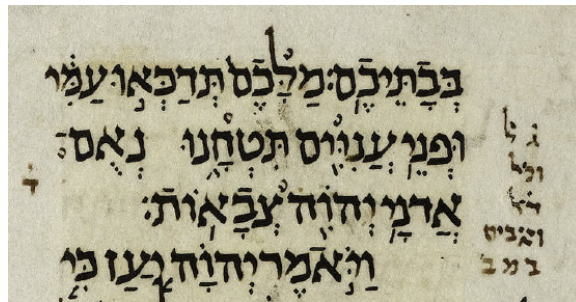 בְּבָתֵּיכֶֽם׃ מַלָּכֶם֙ תְּדַכְּא֣וּ עַמִּ֔י
וּפְנֵ֥י עֲנִיִּ֖ים תִּטְחָ֑נוּ נְאֻם־
אֲדֹנָ֥י יְהוִ֖ה צְבָאֽוֹת׃
וַיֹּ֣אמֶר יְהוָ֗ה יַ֚עַן כִּ֤י